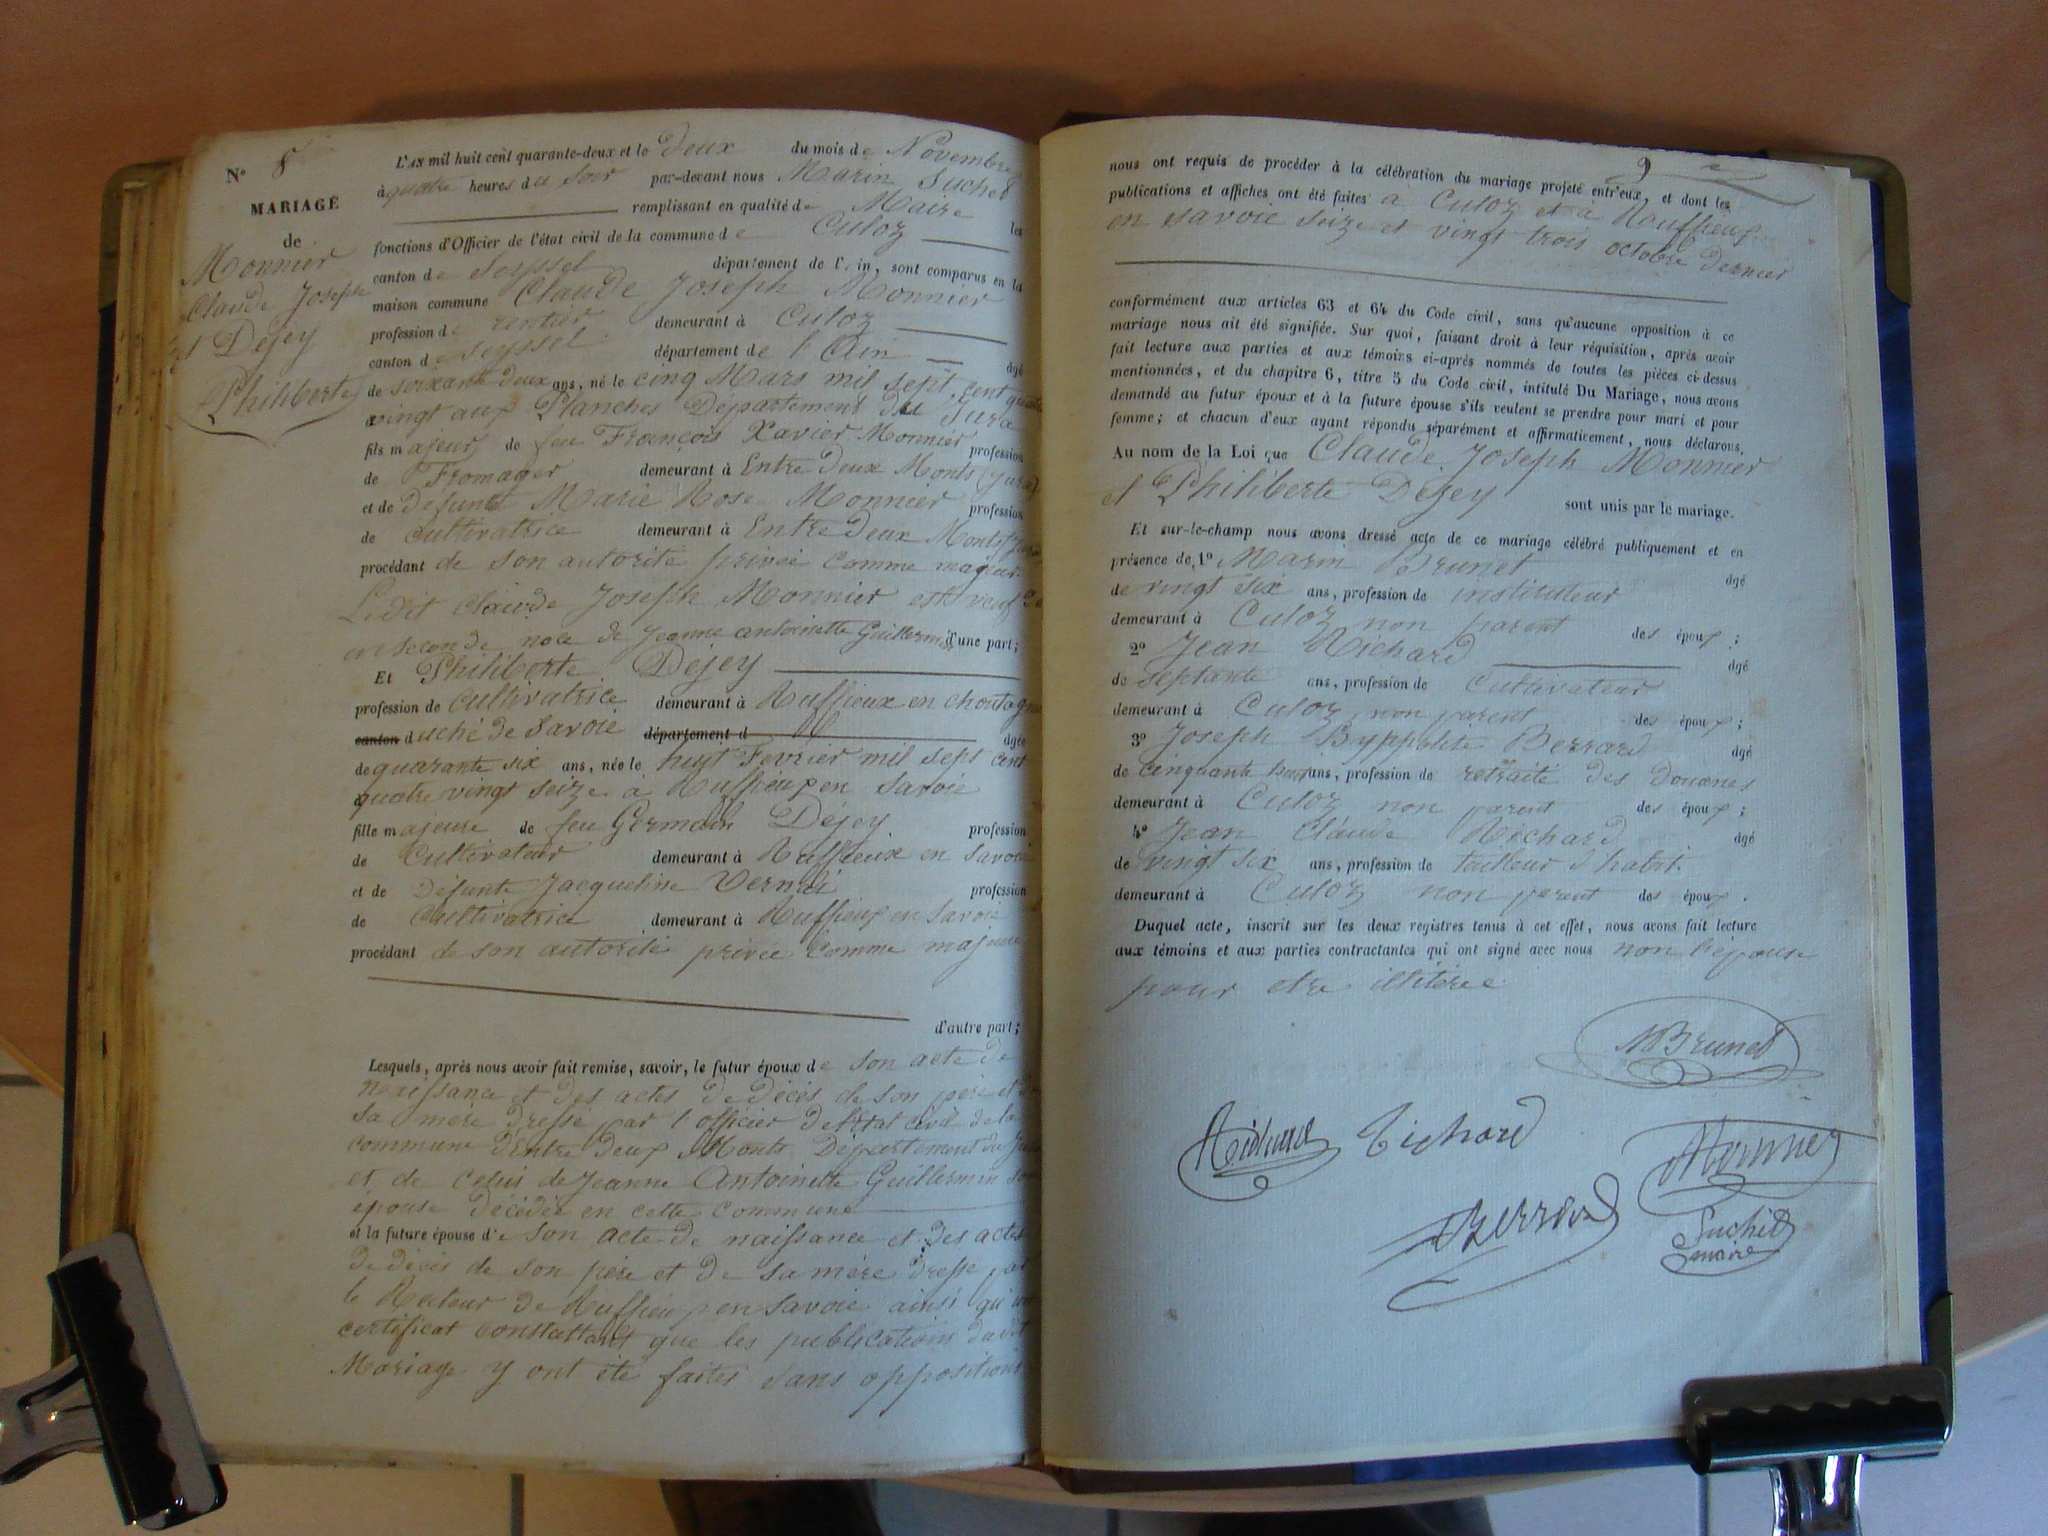 N° 8
MARIAGE
de
Monnier
Claude Joseph
et Dejey
Philiberte
L'AN mil huit cent quarante-deux et le deux du mois de Novembre
à quatre heures du soir par-devant nous Marin Suchet
remplissant en qualité de Maire les
fonctions d'Officier de l'état civil de la commune de Culoz
canton de Seyssel département de l'Ain, sont comparus en la
maison commune Claude Joseph Monnier
profession de rentier demeurant à Culoz
canton de Seyssel département de l'Ain âgé
de soixante deux ans, né le cinq Mars mil sept cent quatre
vingt aux Planches Département du Jura
fils majeur de feu François Xavier Monnier profession
de Fromager demeurant à Entre Deux Monts (jura)
et de défunte Marie Rose Monnier profession
de cultivatrice demeurant à Entre Deux Monts
procédant de son autorité privée comme majeur
Ledit Claude Joseph Monnier est veuf
en seconde noce de Jeanne antoinette Guillermin d'une part;
Et Philiberte Déjey
profession de cultivatrice demeurant à Ruffieux en choutagne
canton duché de Savoie département d âgée
de quarante six ans, née le huit Fevrier mil sept cent
quatre vingt seize à Ruffieux en Savoie
fille majeure de feu Germain Déjey profession
de Cultivateur demeurant à Ruffieux en Savoie
et de Défunte Jacqueline profession
de Cultivatrice demeurant à Ruffieux en Savoie
procédant de son autorité privée comme majeure
d'autre part;
Lesquels, après nous avoir fait remise, savoir, le futur époux de son acte de
naissance et des actes de décès de son père et de
sa mère dressé par l'officier de l'Etat civil de la
commune d'Entre Deux Monts Département du Jura
et de celui de Jeanne Antoinette Guillermin son
épouse décédée en cette commune
et la future épouse de son acte de naissance et des actes
de décès de son père et de sa mère dressé par
le Recteur de Ruffieux en Savoie ainsi qu'un
certificat constattant que les publications dudit
Mariage y ont été faites sans oppositions
9
nous ont requis de procéder à la célébration du mariage projeté entr'eux, et dont les
publications et affiches ont été faites à Culoz et à Ruffieux
en Savoie seize et vingt trois octobre dernier
conformément aux articles 63 et 64 du Code civil, sans qu'aucune opposition à ce
mariage nous ait été signifiée. Sur quoi, faisant droit à leur réquisition, après avoir
fait lecture aux parties et aux témoins ci-après nommés de toutes les pièces ci-dessus
mentionnées, et du chapitre 6, titre 5 du Code civil, intitulé Du Mariage, nous avons
demandé au futur époux et à la future épouse s'ils veulent se prendre pour mari et pour
femme; et chacun d'eux ayant répondu séparément et affirmativement, nous déclarons,
Au nom de la Loi que Claude Joseph Monnier
et Philiberte Dejey sont unis par le mariage.
Et sur-le-champ nous avons dressé acte de ce mariage célébré publiquement et en
présence de 1° Marin Brunet âgé
de vingt six ans, profession de instituteur
demeurant à Culoz non parent des époux;
2° Jean Richard âgé
de septante ans, profession de Cultivateur
demeurant à Culoz non parent des époux;
3° Joseph Hyppolite Berrard âgé
de cinquante ans, profession de retraité des Douanes
demeurant à Culoz non parent des époux;
4° Jean Claude Richard âgé
de vingt six ans, profession de tailleur d'habit.
demeurant à Culoz non parent des époux.
Duquel acte, inscrit sur les deux registres tenus à cet effet, nous avons fait lecture
aux témoins et aux parties contractantes qui ont signé avec nous non l'épouse
pour etre illitérée
MBrunet
Richard Richard
Monnier
Berrard
Suchet
maire